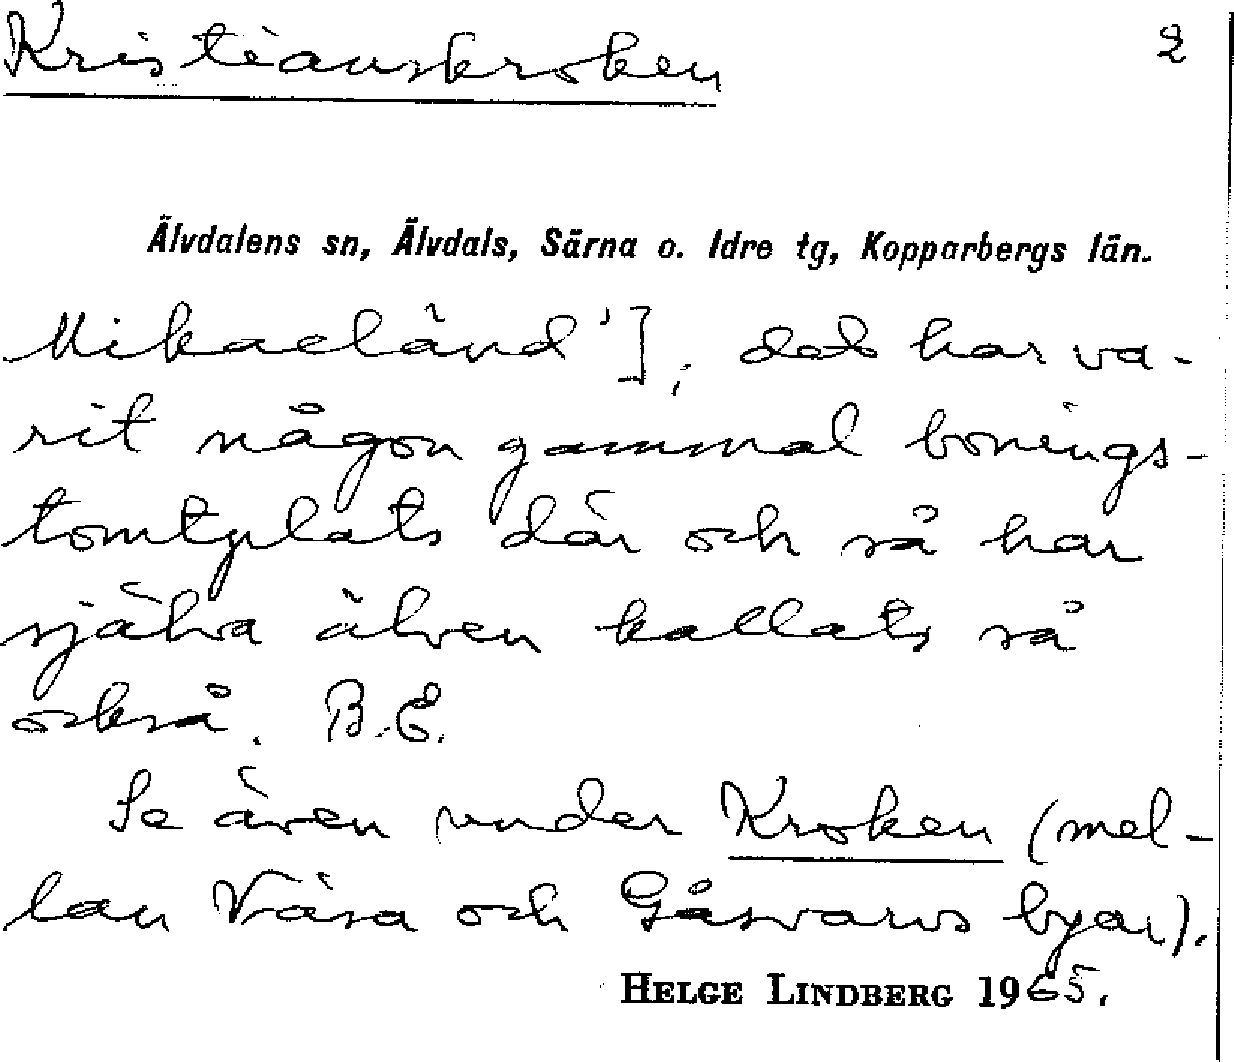 Kristianskroken 2
Älvdalens sn, Älvdals, Särna o. Idre tg, Kopparbergs län.
Mikaeländ'], det har va-
rit någon gammal bonings-
tomtplats där och så har
själva älven kallats så
också. B.E.
Se även under Kroken (mel-
lan Väsa och Gåsvarvs byar).
HELGE LINDBERG 1965.